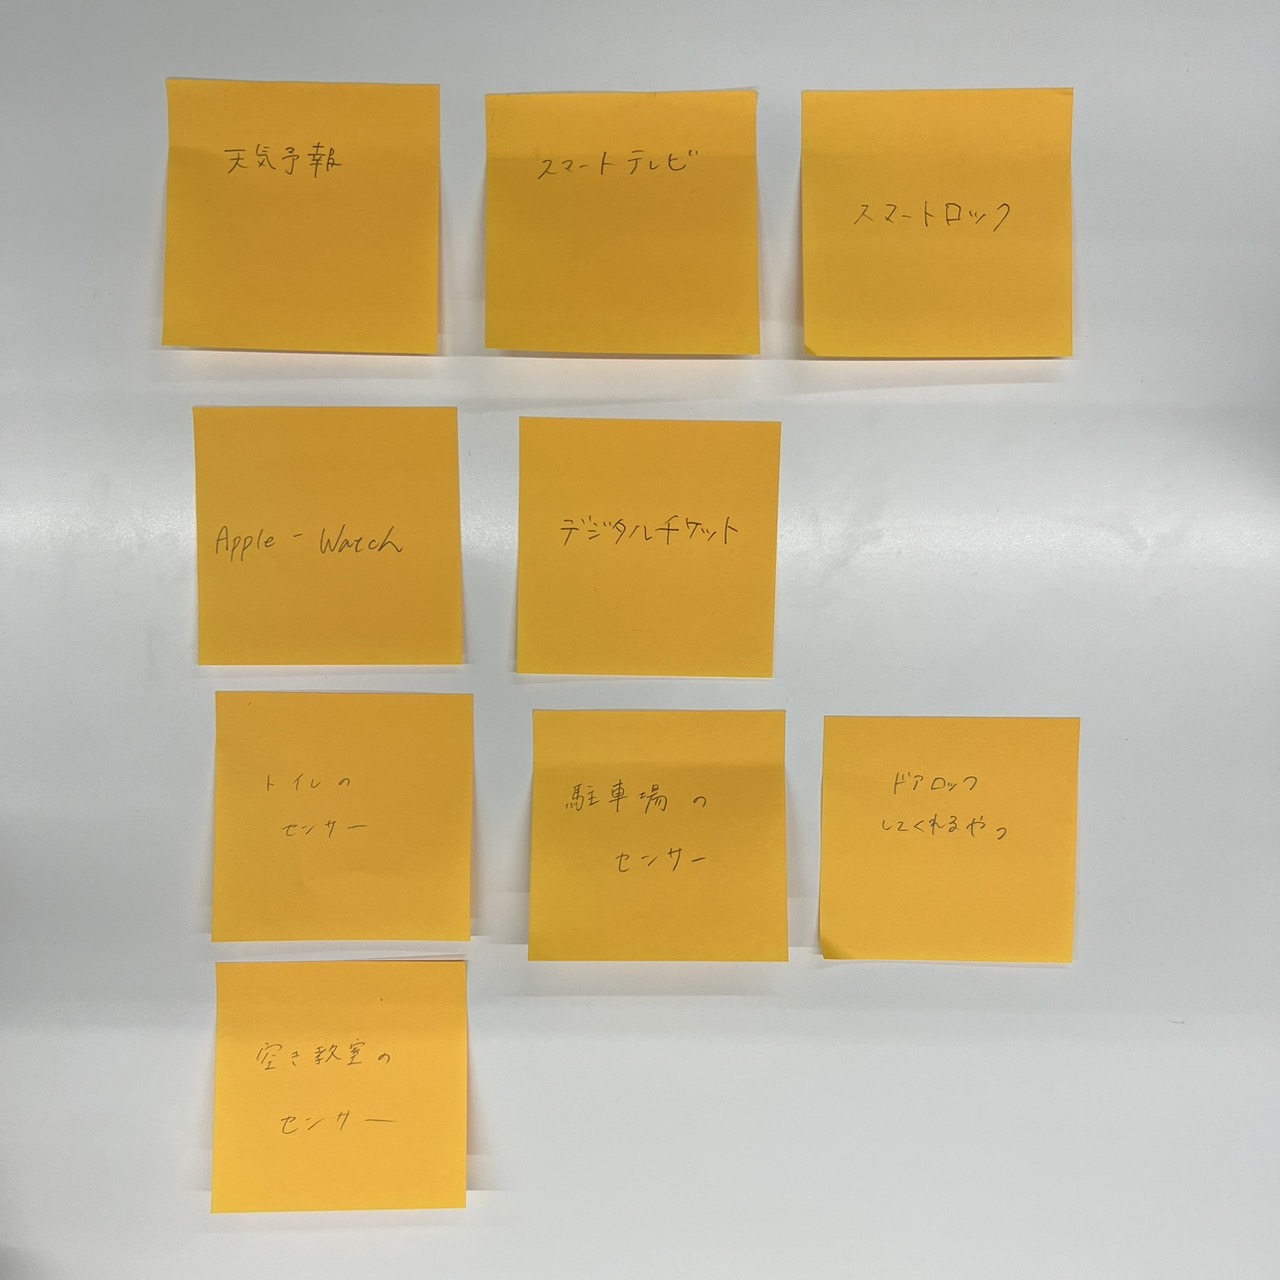 天気予報
スマートテレビ
スマートロック
Apple - Watch
デジタルチケット
トイレの
センサー
駐車場の
センサー
ドアロック
してくれるやつ
空き教室の
センサー